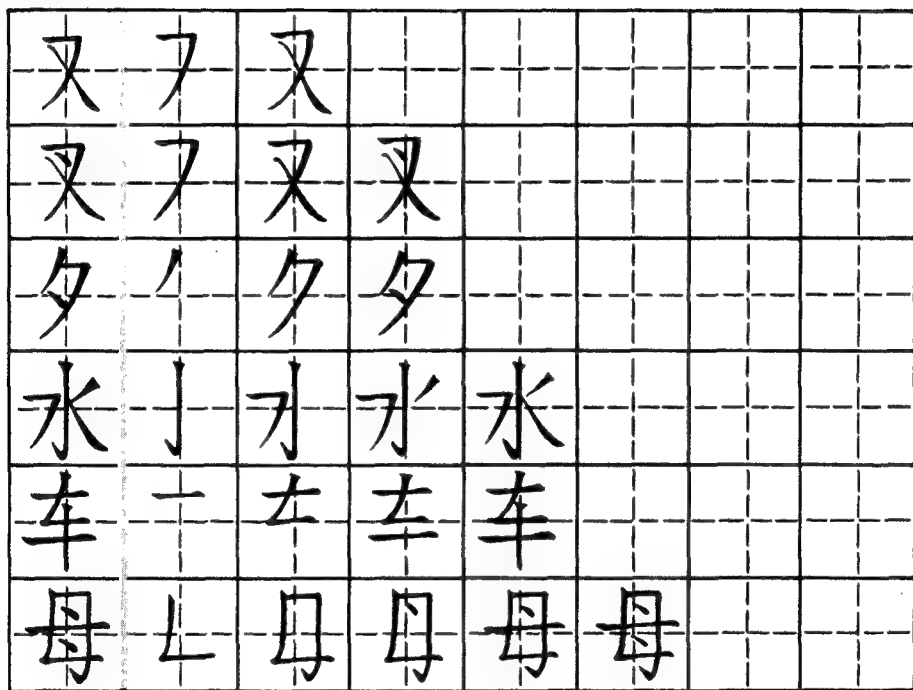 又 ㇇ 又
叉 ㇇ 又 叉
夕 丿 ク 夕
水 亅 水
车 一 车
母 𠃊 母